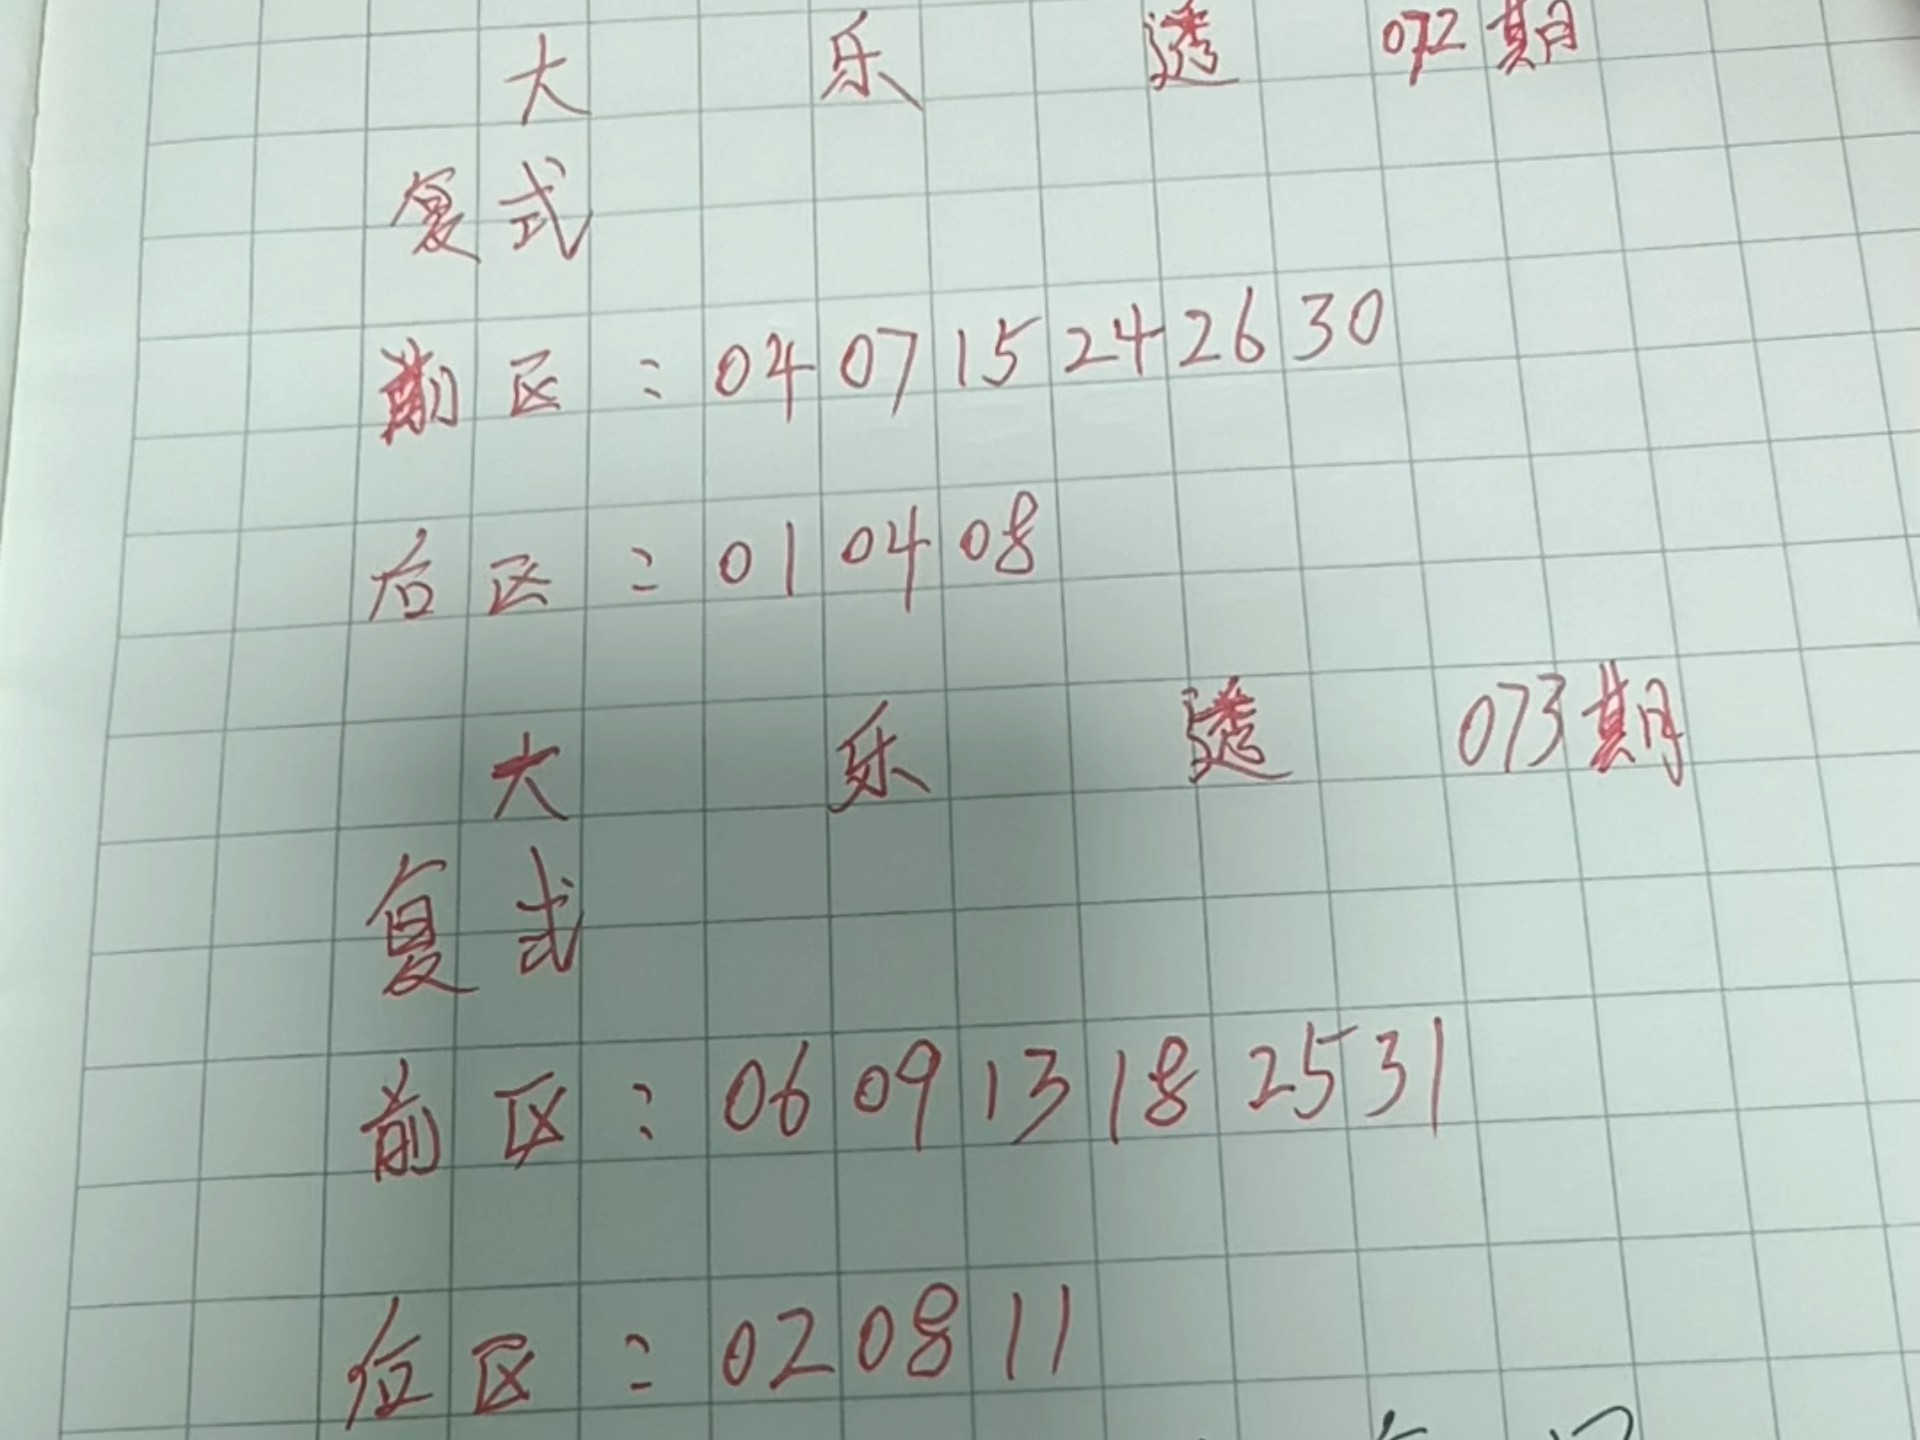 大乐透 072期
复式
前区：04 07 15 24 26 30
后区：01 04 08
大乐透 073期
复式
前区：06 09 13 18 25 31
后区：02 08 11